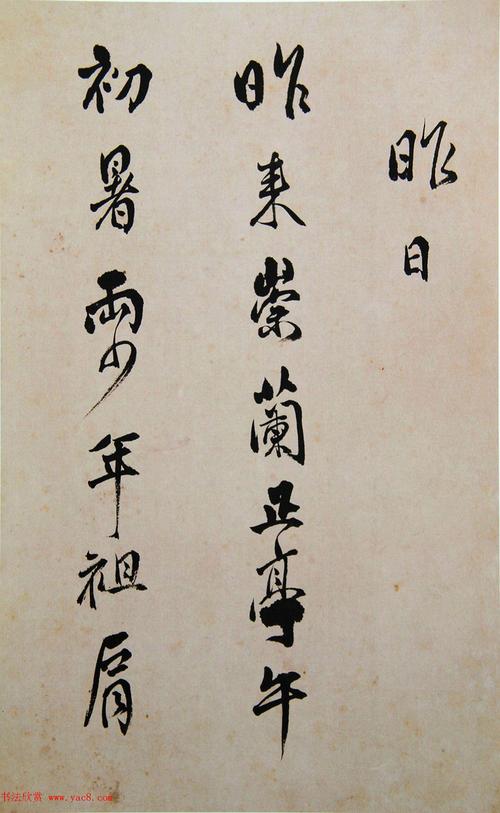 昨日
昨来崇兰正亭午
初暑两少年袒肩
书法欣赏 www.yac8.com